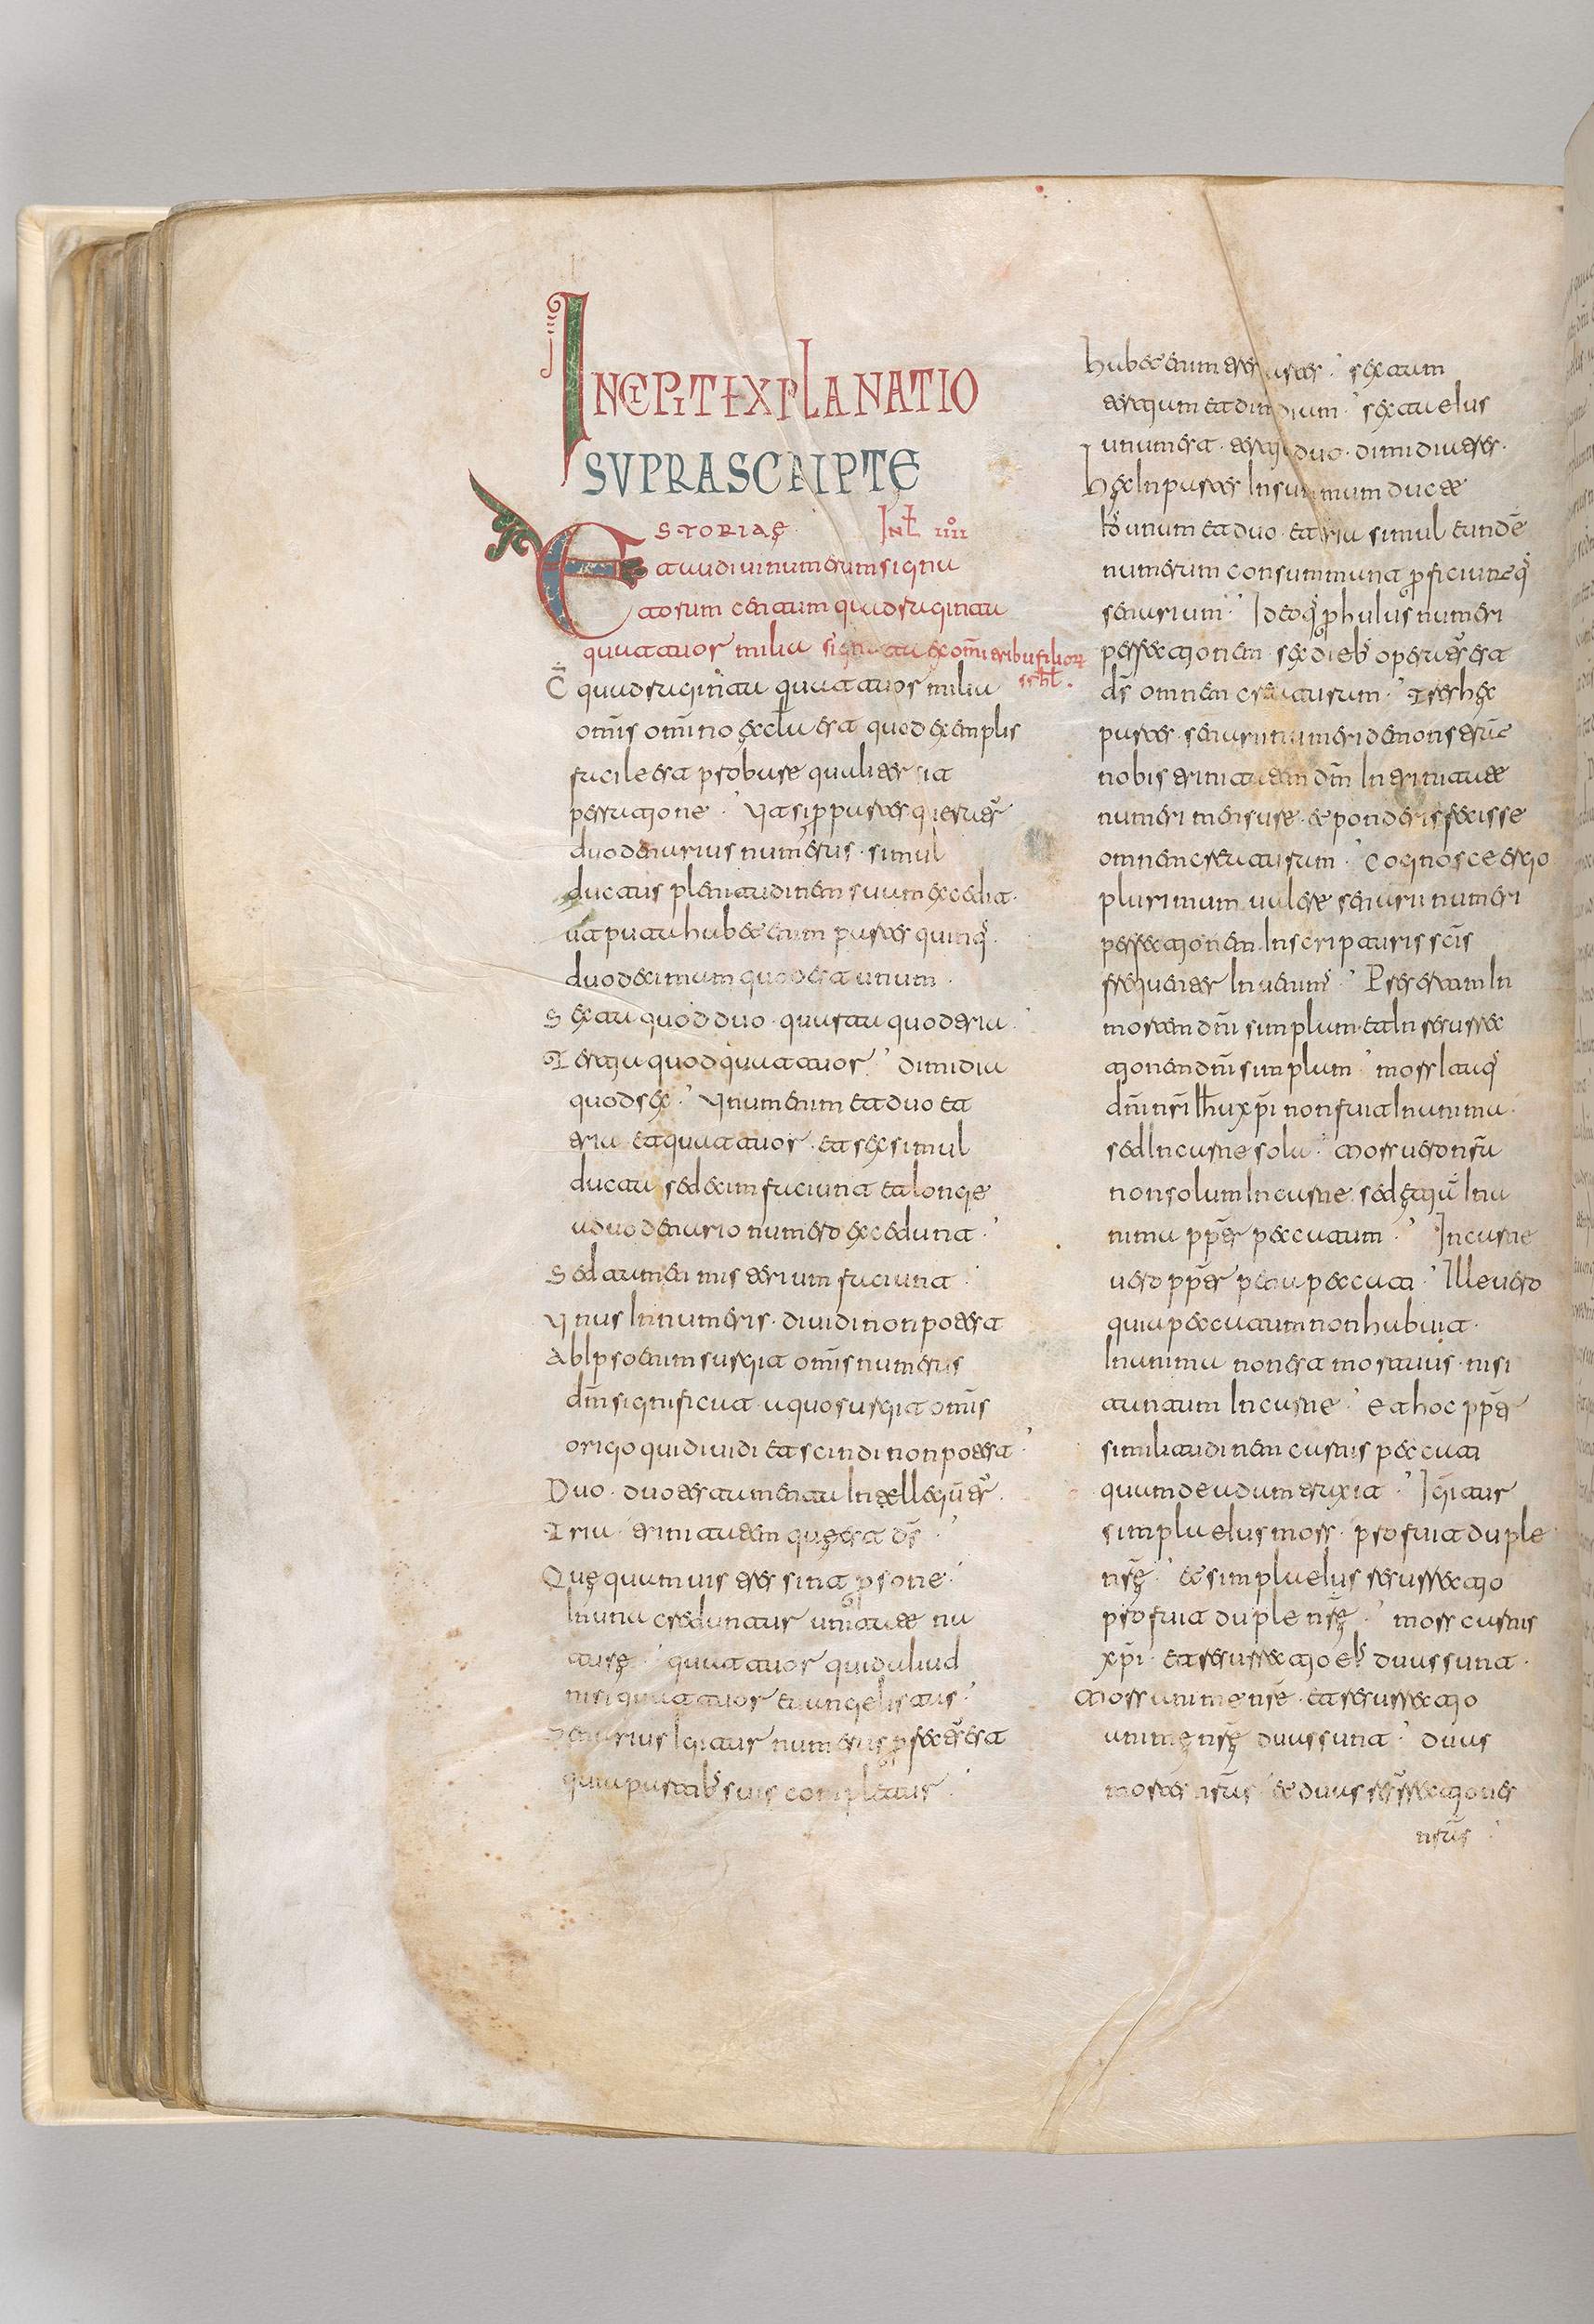 INCIPIT EXPLANATIO
SUPRASCRIPTE
STORIAE IN L̄ IIII
Et audiui numerum signa
torum centum quadraginta
quattuor milia signati ex om̄i tribu filior
srhl̄.
C̄ quadraginta quattuor milia
om̄is om̄ino eccl̄a est quod exemplis
facile est probare qualiter sit
perratione. Ut si p partes queras
duodenarius numerus simul
ductus plenitudinem suam excedit.
ut puta habet enim partes quinq.
duodecimam quod est unum.
Sexta quod duo. quarta quod tria.
Tertia quod quattuor. dimidia
quod sex. Unum enim et duo et
tria et quattuor et sex simul
ducta sedecim faciunt et longe
a duodenario numero excedunt.
Sed tamen misterium faciunt.
Unus in numeris. diuidi non potest
Ab ipso enim surgit om̄is numerus
dm̄ significat a quo surgit om̄is
origo qui diuidi et scindi non potest.
Duo. duo testamenta intellegunt̄.
Tria. trinitatem quę est ds̄.
Quę quamuis tres sint psone.
In una creduntur unitate na
turę. quattuor quid aliud
nisi quattuor euangelistas.
Senarius igitur numerus pfectus est
quia partib suis completur.
habet enim tres partes. sextam
tertiam et dimidium. sexta eius
unum est. tertia duo. dimidia tres.
hęc in partes in summam ducte
id unum et duo et tria simul eundē
numerum consummant pficiuntq
senarium. Ideoq p huius numeri
perfectionem sex dieb operatus est
ds̄ omnem creaturam. Tres hęc
partes senarii numeri demonstrant
nobis trinitatem dm̄ in trinitate
numeri mensure et ponderis fecisse
omnem creaturam. Cognosce ergo
plurimum ualere senarii numeri
perfectionem In scripturis scīs
frequenter Inuenim. Preter etiam In
mortem dn̄i simplum et In resurrec
tionem dn̄i simplum. mors Itaq
dn̄i nr̄i Ihu xp̄i non fuit In anima.
sed In carne sola. Mors uero nr̄a
non solum In carne sed etia In a
nima ppter peccatum. In carne
uero ppter pena peccati. Ille uero
quia peccatum non habuit.
In anima non est mortuus nisi
tantum In carne. et hoc ppter
similitudinem carnis peccati
quam de adam traxit. Igitur
simpla eius mors profuit duple
nr̄ę. et simpla eius resurrectio
profuit duple nr̄ę. mors carnis
xp̄i et resurrectio ei duas sunt.
Mors anime nr̄e et resurrectio
animę nr̄ę duas sunt. duas
mortes nr̄as et duas resurrectiones
nr̄as.